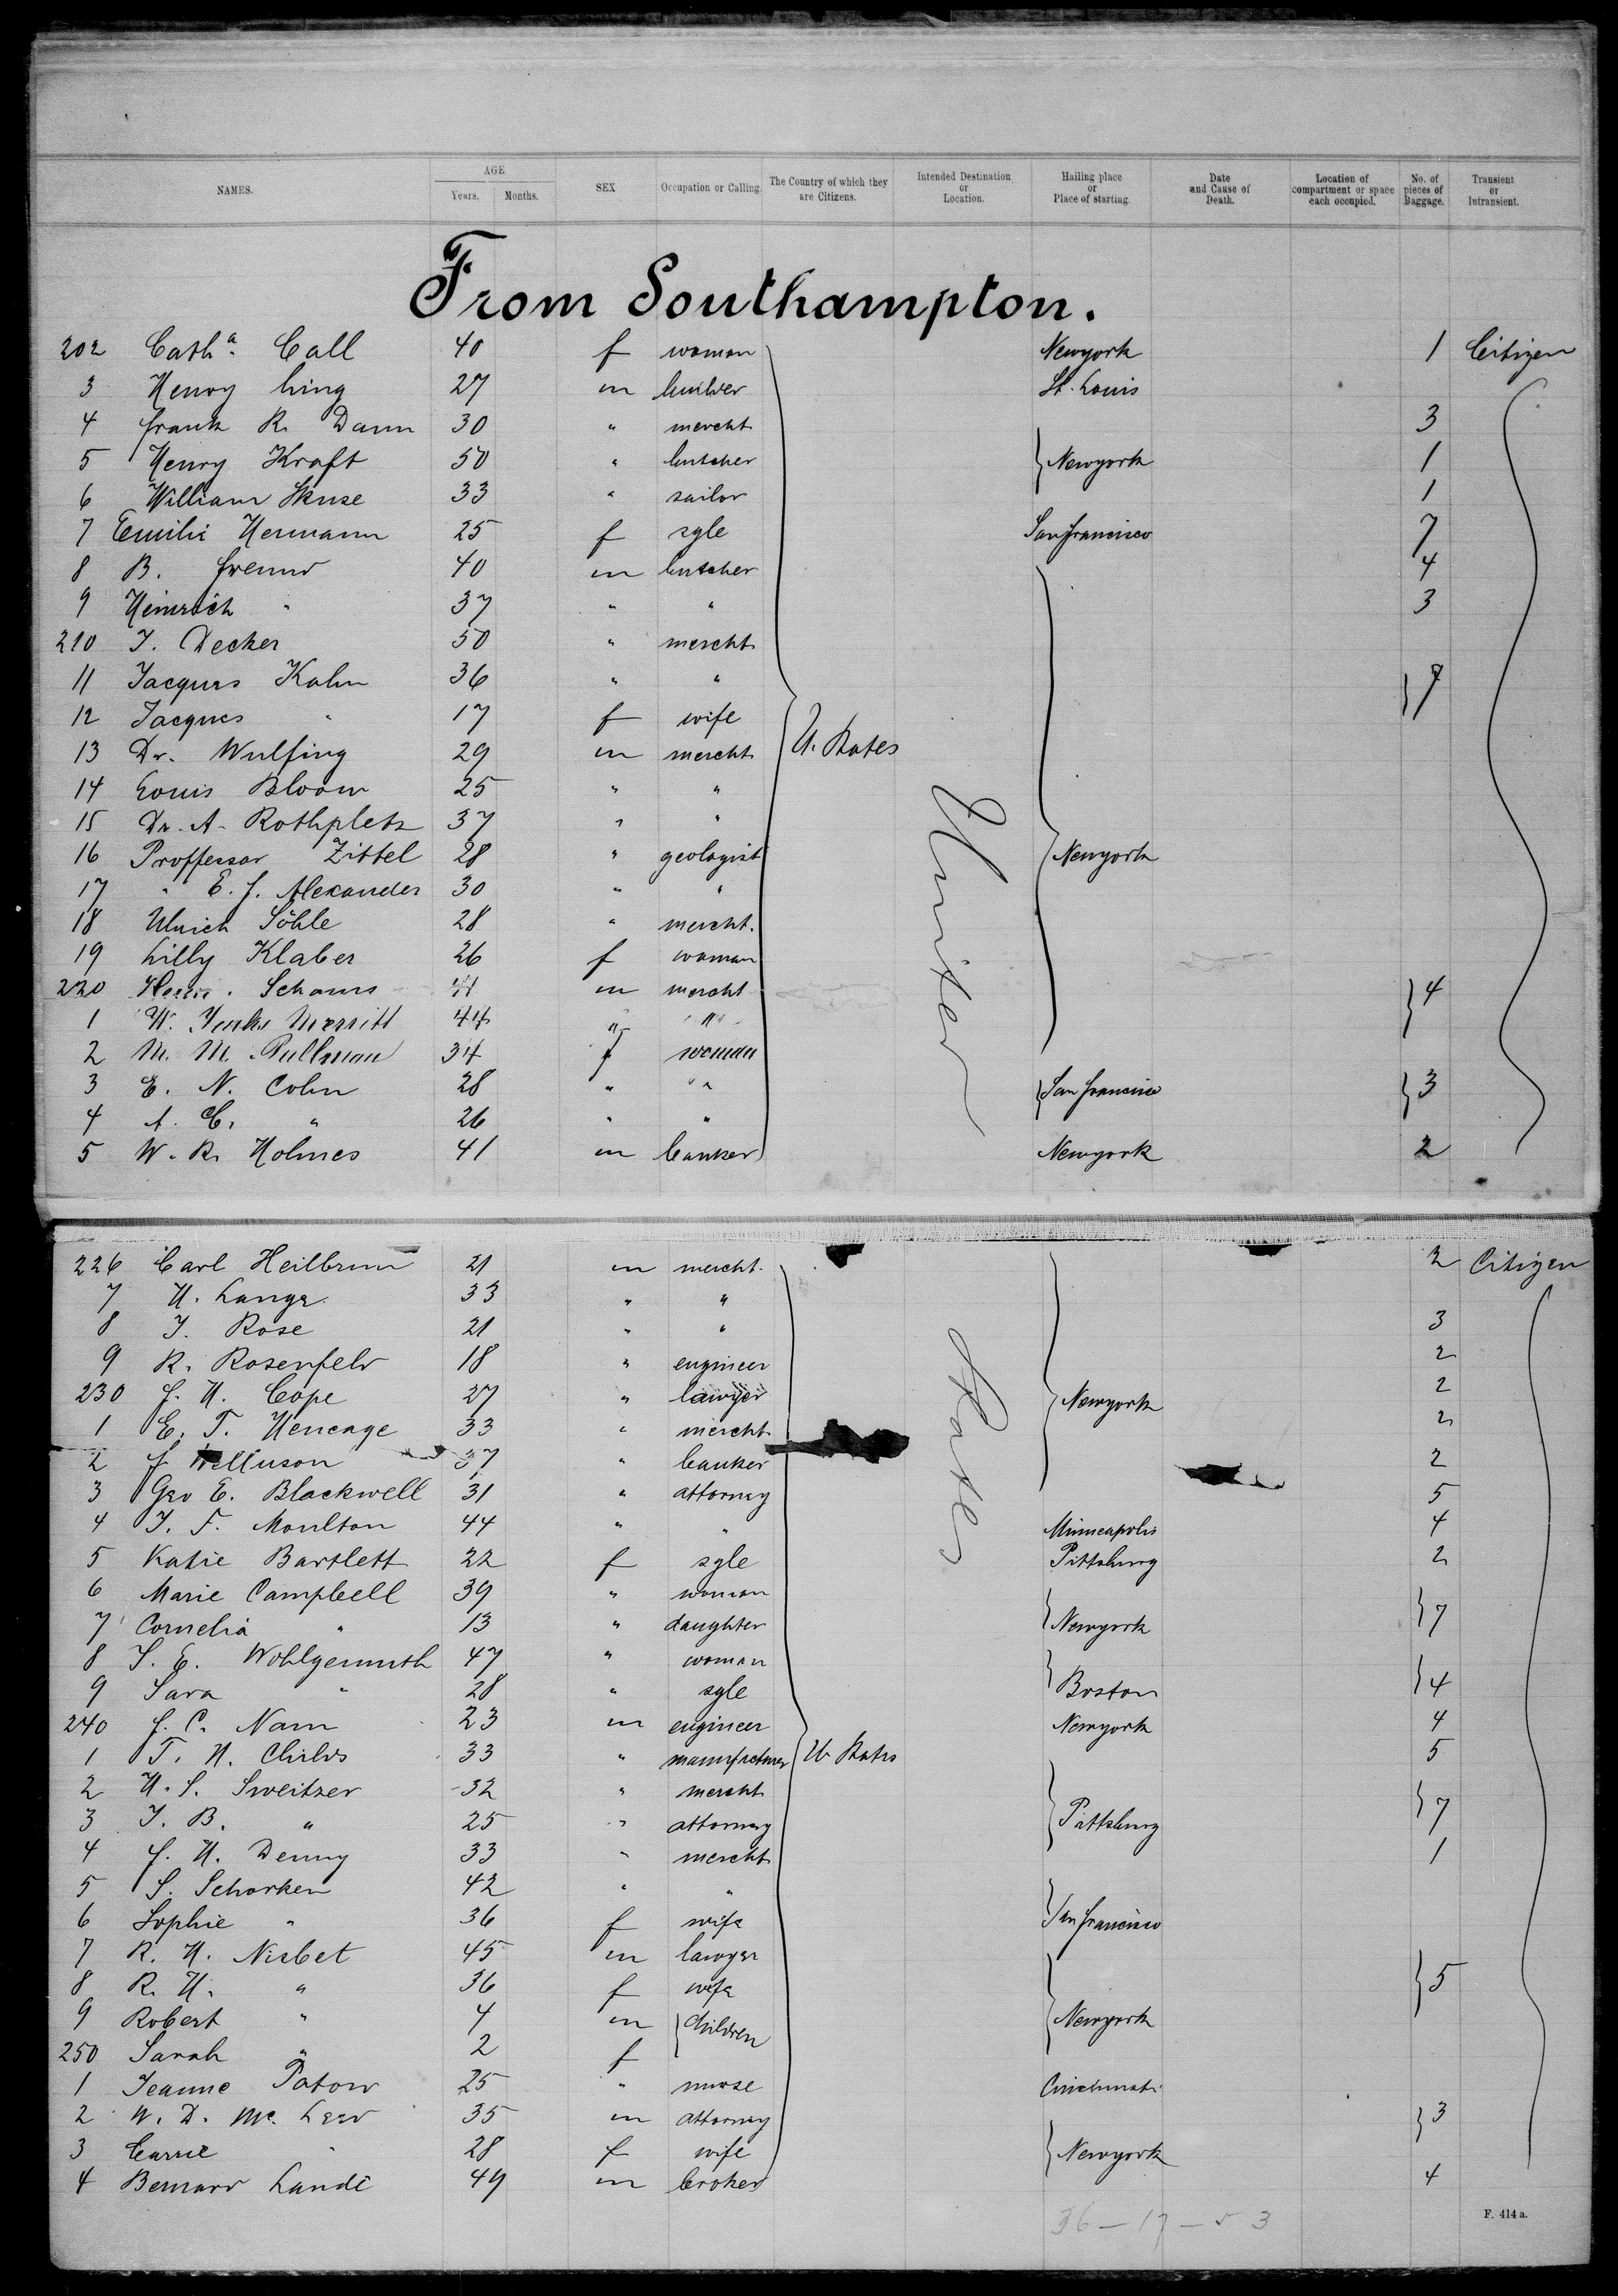 NAMES. AGE Years. Months. SEX Occupation or Calling. The Country of which they are Citizens. Intended Destination or Location. Hailing place or Place of starting. Date and Cause of Death. Location of compartment or space each occupied. No. of pieces of Baggage. Transient or Intransient.
From Southampton.
202 Cath.a Call 40 f woman Newyork 1 Citizen
3 Henry 27 m builder St. Louis
4 frank R. Dann 30 " mercht 3
5 Henry Kraft 50 " butcher Newyork 1
6 William Skuse 33 " sailor 1
7 Emilie Hermann 25 f sgle Sanfrancisco 7
8 B. freund 40 m butcher 4
9 Heinrich " 37 " " 3
210 J. Decker 50 " mercht
11 Jacques Kahn 36 " " 7
12 Jacques " 17 f wife
13 Dr. Wulfing 29 m mercht U. States
14 Louis Bloom 25 " "
15 Dr. A. Rothpletz 37 " "
16 Proffessor Zittel 28 " geologist Newyork
17 " E. J. Alexander 30 " "
18 Ulrich Söhle 28 " mercht.
19 Lilly Klaber 26 f woman
220 Schauss m mercht 4
1 W. Jenks Merritt 44 " "
2 M. M. Pullman 34 f woman
3 E. N. Cohn 28 " " San francisco 3
4 A. C. " 26 " "
5 W. R. Holmes 41 m banker Newyork 2
United
226 Carl Heilbrun 21 m mercht. 2 Citizen
7 H. Lange 33 " "
8 J. Rose 21 " " 3
9 R. Rosenfeld 18 " engineer 2
230 J. H. Cope 27 " lawyer Newyork 2
1 E. T. Heneage 33 " mercht 2
2 f 37 " banker 2
3 Geo E. Blackwell 31 " attorney 5
4 J. F. Moulton 44 " " Minneapolis 4
5 Katie Bartlett 22 f sgle Pittsburg 2
6 Marie Campbell 39 " woman
7 Cornelia " 13 " daughter Newyork 7
8 S. E. Wohlgemuth 47 " woman
9 Sara " 28 " sgle Boston 4
240 J. C. Nam 23 m engineer Newyork 4
1 T. H. Childs 33 " manufacturer U. States 5
2 H. S. Sweitzer 32 " mercht
3 J. B. " 25 " attorney Pittsburg 7
4 J. H. Denny 33 " mercht 1
5 S. Schorken 42 " "
6 Sophie " 36 f wife San francisco
7 R. H. Nisbet 45 m lawyer
8 R. H. " 36 f wife 5
9 Robert " 4 m children Newyork
250 Sarah " 2 f
1 Jeanne Patow 25 " nurse Cincinnati
2 W. D. Mc. Leed 35 m attorney 3
3 Carrie " 28 f wife Newyork
4 Bernard Lande 49 m broker 4
States
36 — 17 — 53
F. 414 a.